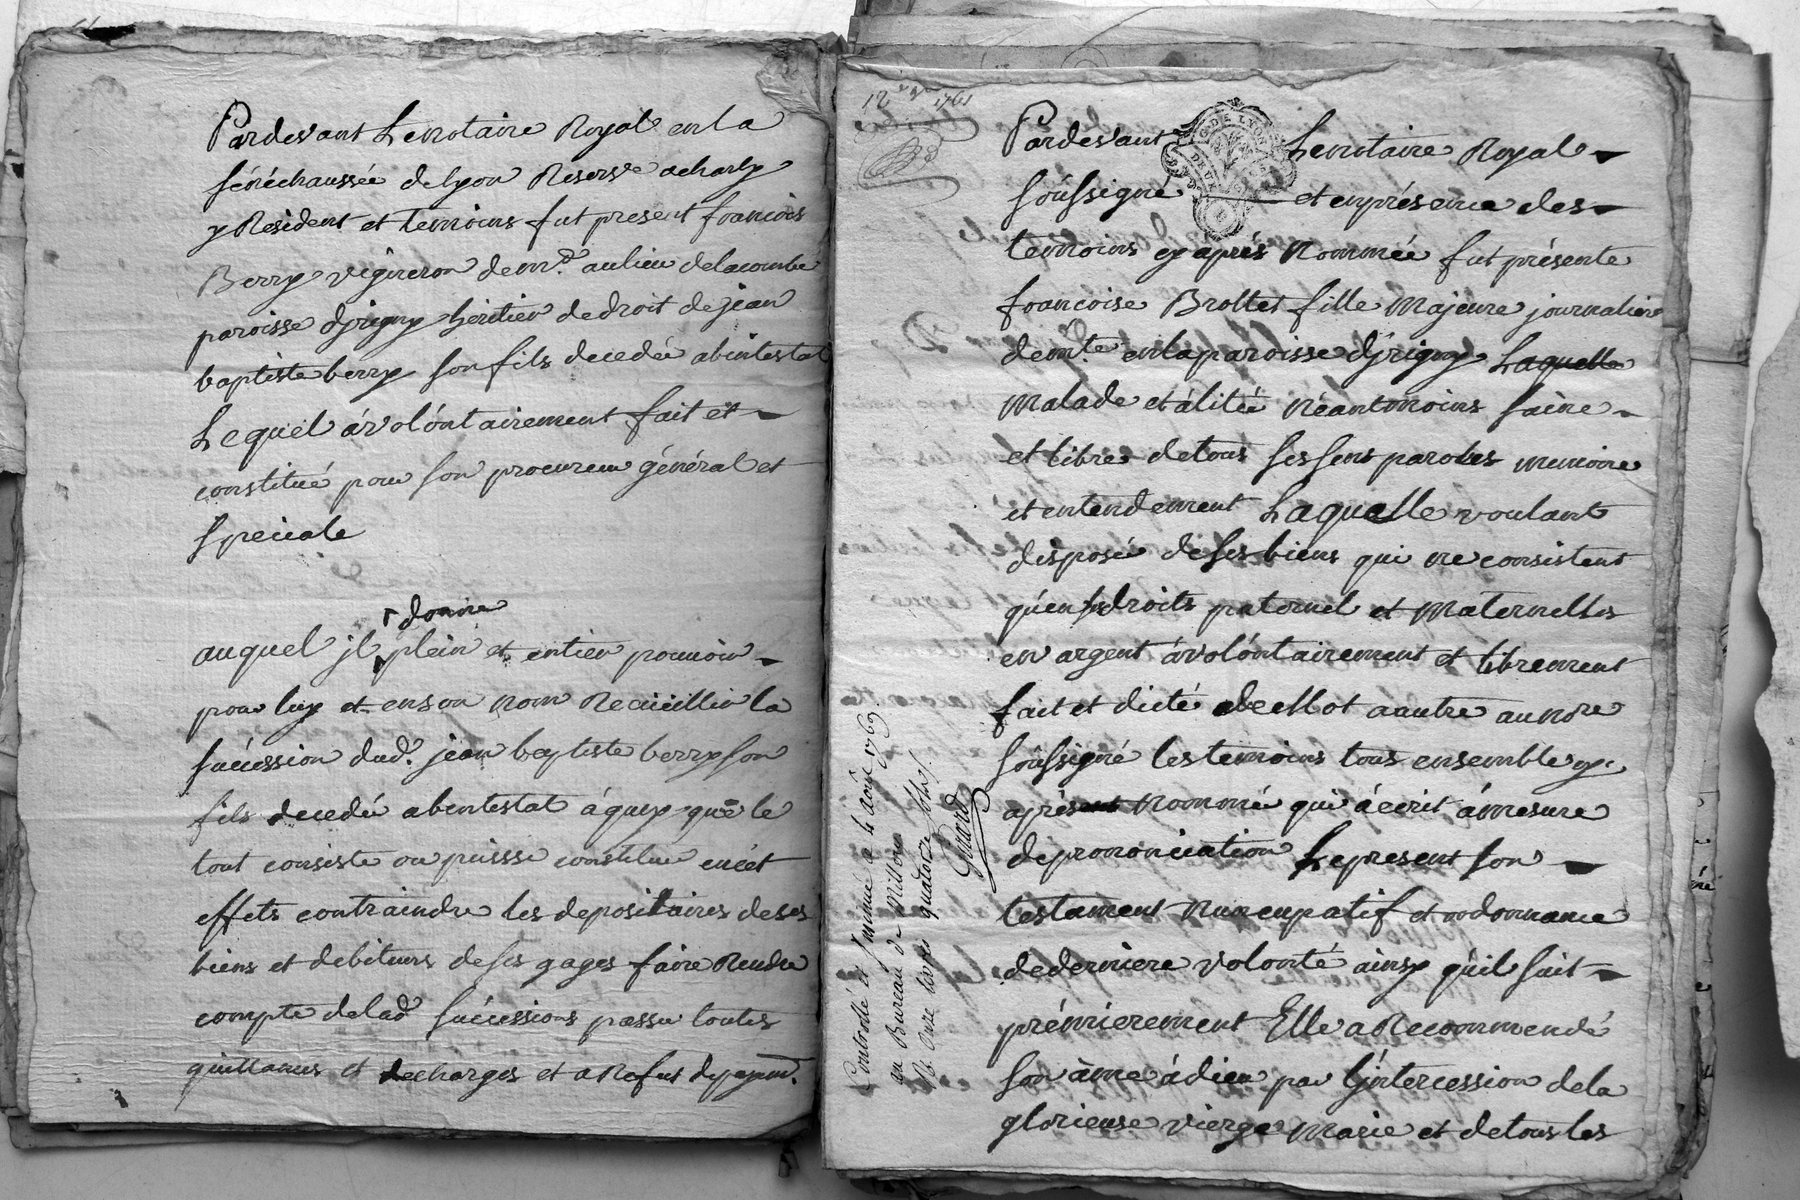 Pardevant Le notaire Royal en la
sénéchaussée de lyon Reservé a charly
y Resident et temoins fut present francois
Berry vigneron dem.t au lieu delacombe
paroisse djrigny héritier de droit de jean
baptiste berry son fils decedé abintestat
Lequel á volóntairement fait et
constitué pour son procureur général et
speciale
donne
auquel jl plein et entier pouvoir
pour luy et en son nom Recüeillir la
succession dud. jean baptiste berry son
fils decedé abintestat á quoy que le
tout consiste ou puisse constituer en cet
effets contraindre les depositaires de ses
biens et debiteurs de ses gages faire Rendre
compte de lad. successions passer toutes
quittances et decharges et a Refus de payem.t
12 1761
Pardevant Le notaire Royal
G. DE LYON
DEUX
soussigné et en présence des
temoins cy aprés Nommée fut présente
francoise Brottet fille Majeure journaliere
dem.te en la paroisse djrigny Laquelle
Malade et alitée Néantmoins saine
et libre de tous ses sens paroles memoire
et entendement Laquelle voulant
disposé de ses biens qui ne consistent
qu'en ses droits paternel et Maternelles
en argent á volóntairement et librement
fait et dicté de Mot a autre au no.re
soussigné les temoins tous ensemble cy
aprés nommé qui á ecrit á mesure
de prononciation Le present son
testament Nuncupatif et ordonnance
de derniere volonté ainsy qu'il suit
prémierement Elle a Recommendé
son ame á dieu par L'intercession de la
glorieuse vierge Marie et de tous les
Controllé et Insinué le 4 Aout 1769
au Bureau de Millery
R. onze livres quatorze sols
Guiard